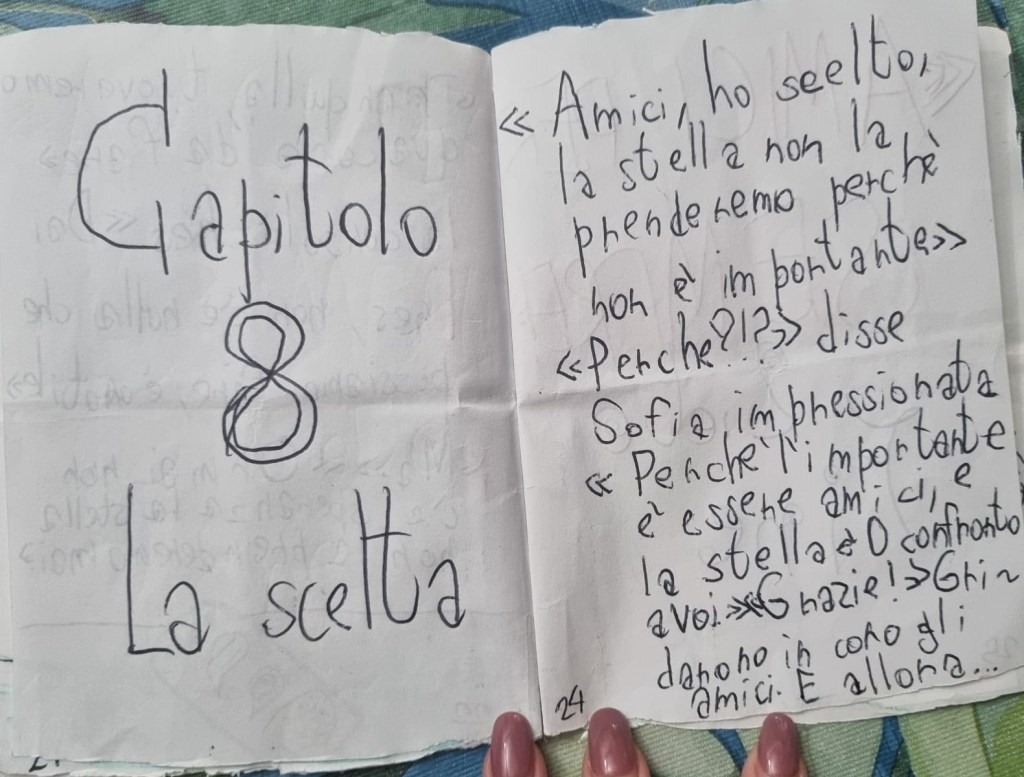 Capitolo
8
La scelta
« Amici, ho scelto,
la stella non la
prenderemo perchè
non è importante»
«Perche?!?» disse
Sofia impressionata
« Perchè l'importante
è essere amici, e
la stella è 0 confronto
a voi.» «Grazie!» Gri~
darono in coro gli
amici. E allora...
24